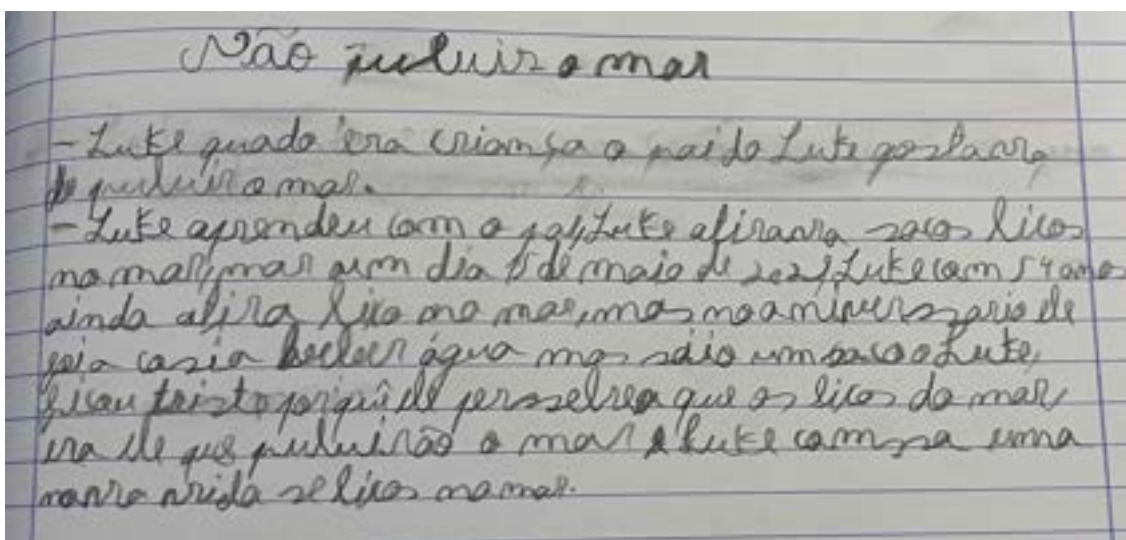 Não puluir o mar
- Luke quado era criança o pai do Luke gostava
de puluir o mar.
- Luke aprendeu com o pai, Luke atirava sacos licos
no mar, mar um dia 5 de maio de 2021, Luke com 54 anos
ainda atira lico no mar, mas no aniversario de
ia beber água mas sáio um saco o Luke,
ficou tristo porquê que os licos do mar
era de que puluirão o mar e Luke uma
vida se licos no mar.